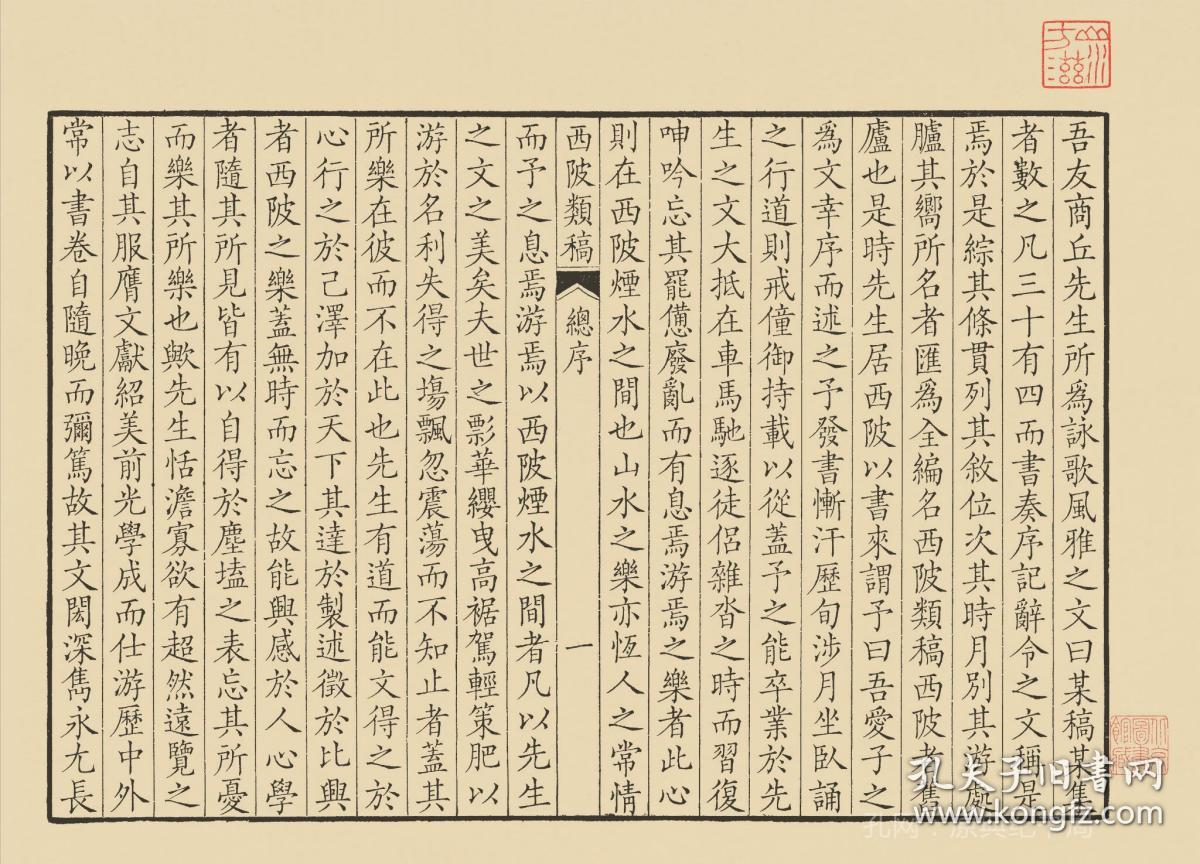 吾友商丘先生所爲詠歌風雅之文曰某稿某集
者數之凡三十有四而書奏序記辭令之文稱是
焉於是綜其條貫列其敘位次其時月別其游處
臚其嚮所名者匯爲全編名西陂類稿西陂者舊
廬也是時先生居西陂以書來謂予曰吾愛子之
爲文幸序而述之予發書慚汗歷旬涉月坐臥誦
之行道則戒僮御持載以從蓋予之能卒業於先
生之文大抵在車馬馳逐徒侶雜沓之時而習復
呻吟忘其罷憊廢亂而有息焉游焉之樂者此心
則在西陂煙水之間也山水之樂亦恆人之常情
西陂類稿 總序 一
而予之息焉游焉以西陂煙水之間者凡以先生
之文之美矣夫世之影華纓曳高裾駕輕策肥以
游於名利失得之塲飄忽震蕩而不知止者蓋其
所樂在彼而不在此也先生有道而能文得之於
心行之於己澤加於天下其達於製述徵於比興
者西陂之樂蓋無時而忘之故能興感於人心學
者隨其所見皆有以自得於塵壒之表忘其所憂
而樂其所樂也歟先生恬澹寡欲有超然遠覽之
志自其服膺文獻紹美前光學成而仕游歷中外
常以書卷自隨晚而彌篤故其文閎深雋永尢長
孔夫子旧书网
www.kongfz.com